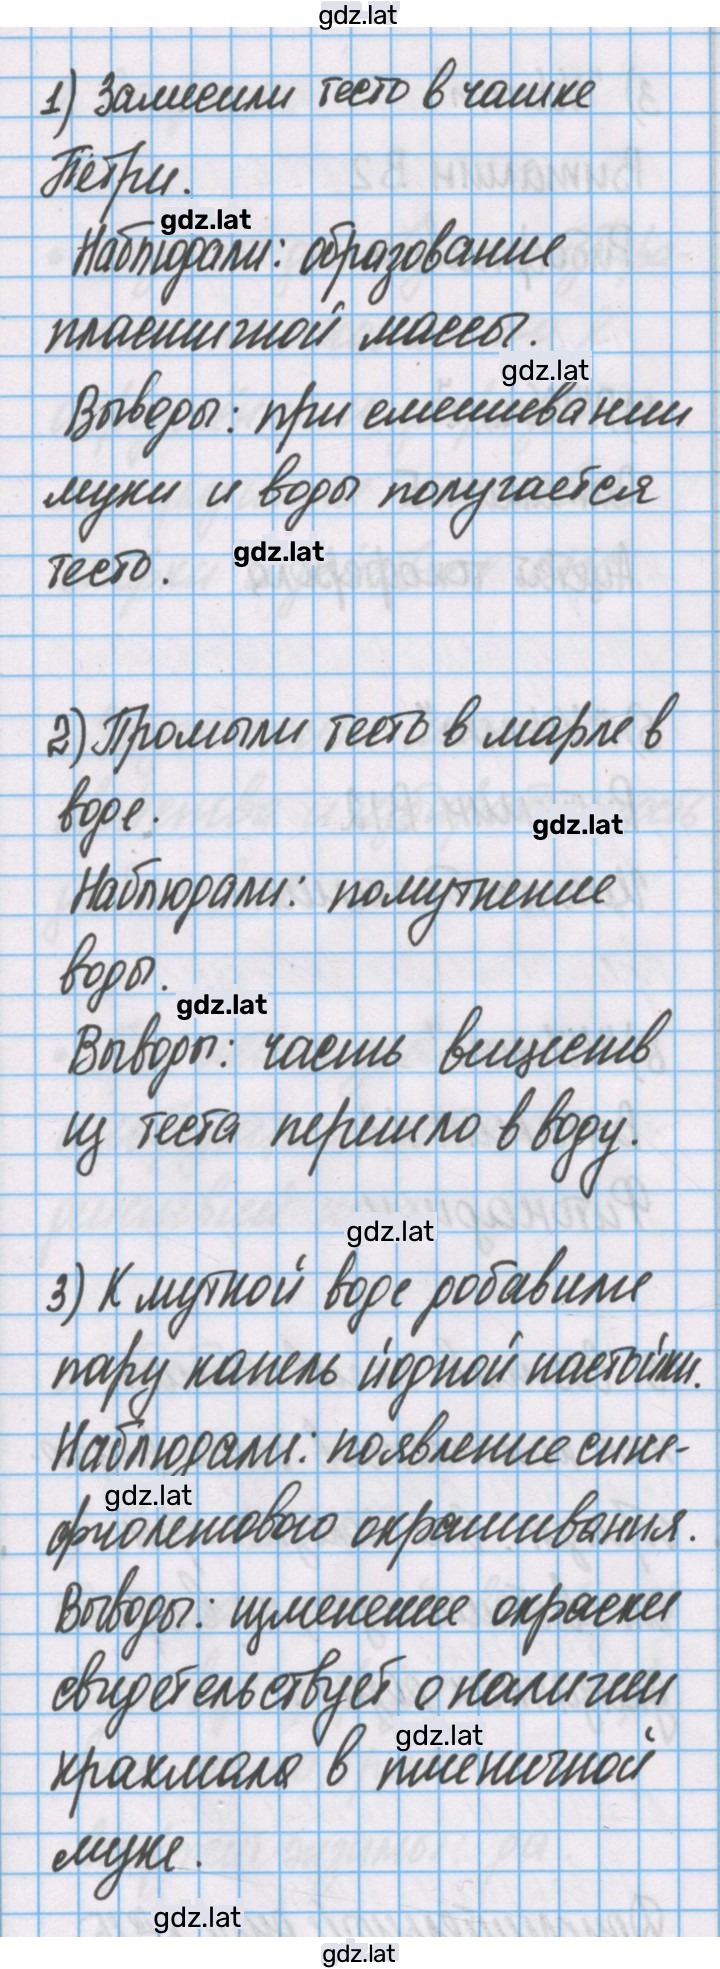 gdz.lat
1) Замесили тесто в чашке
Петри.
gdz.lat
Наблюдали: образование
пластичной массы.
gdz.lat
Выводы: при смешивании
муки и воды получается
тесто.
gdz.lat
2) Промыли тесто в марле в
воде.
gdz.lat
Наблюдали: помутнение
воды.
gdz.lat
Выводы: часть веществ
из теста перешло в воду.
gdz.lat
3) К мутной воде добавили
пару капель йодной настойки.
Наблюдали: появление сине-
gdz.lat
фиолетового окрашивания.
Выводы: изменение окраски
свидетельствует о наличии
gdz.lat
крахмала в пшеничной
муке.
gdz.lat
gdz.lat